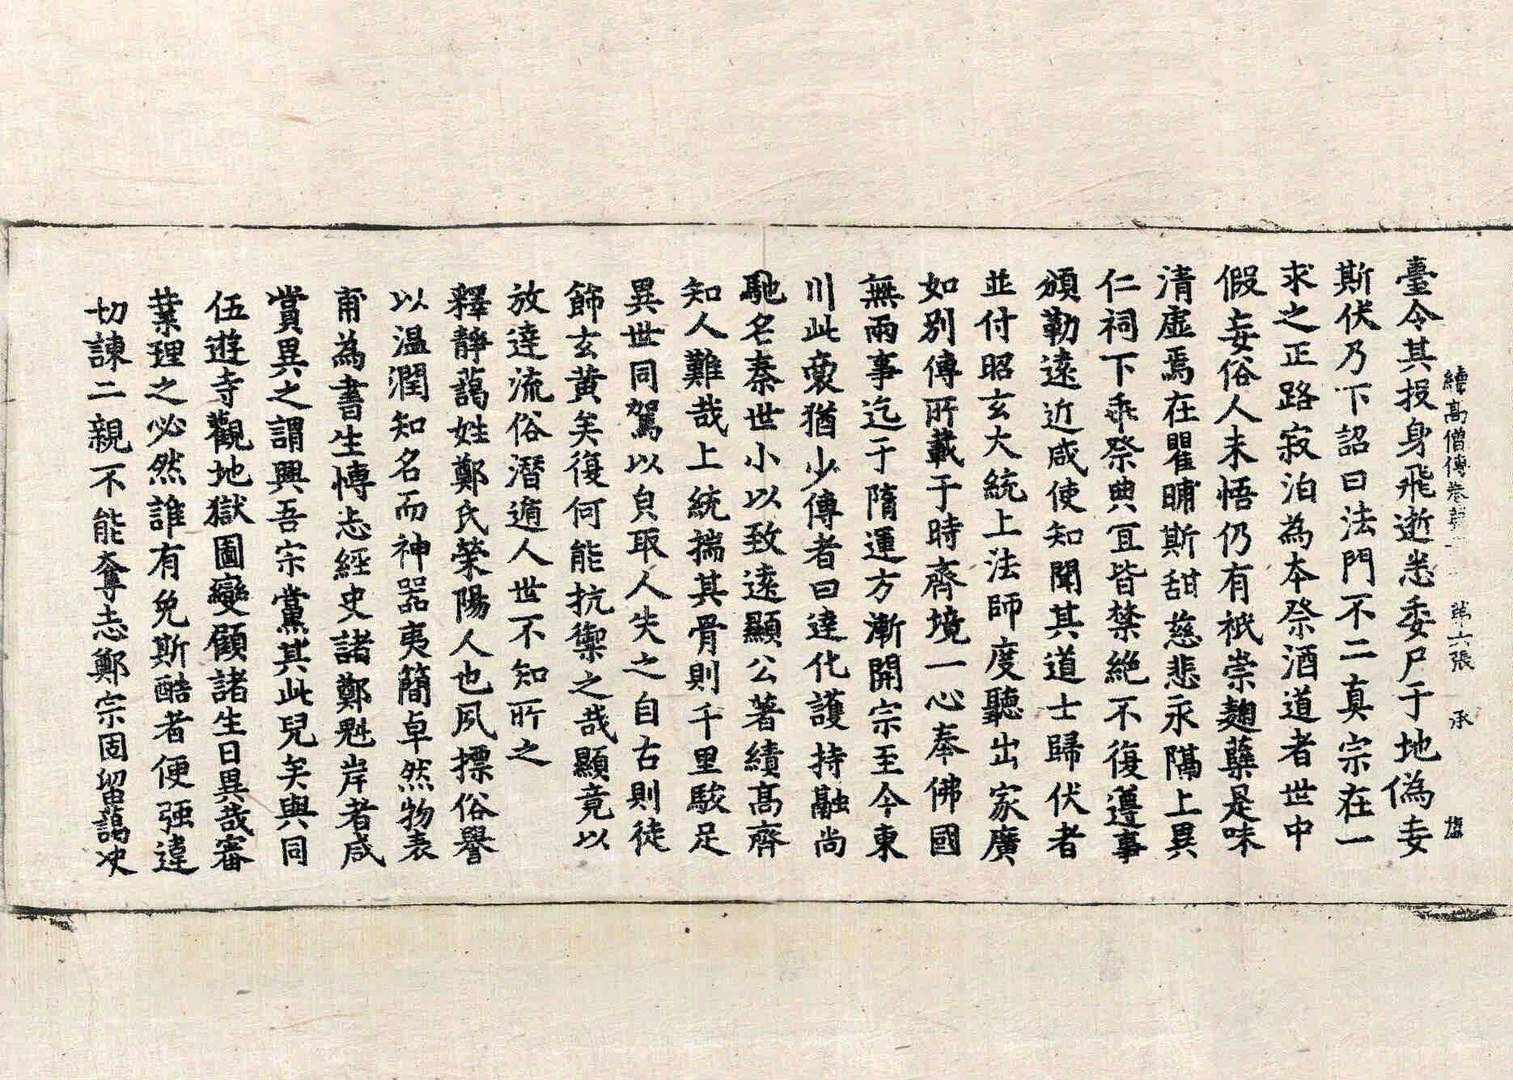 續高僧傳卷第二十三 第六張 承
臺令其投身飛逝悉委尸于地偽妄
斯伏乃下詔曰法門不二真宗在一
求之正路寂泊為本祭酒道者世中
假妄俗人未悟仍有祇崇麹糵是味
清虛焉在瞿脯斯甜慈悲永隔上異
仁祠下乖祭典冝皆禁絕不復遵事
頒勒遠近咸使知聞其道士歸伏者
並付昭玄大統上法師度聽出家廣
如別傳所載于時齊境一心奉佛國
無兩事迄于隋運方漸開宗至今東
川此褱猶少傳者曰達化護持融尚
馳名秦世小以致遠顯公著績髙齊
知人難哉上統揣其骨則千里駿足
異世同駕以負取人失之自古則徒
飾玄黃矣復何能抗禦之哉顯竟以
放達流俗潛遁人世不知所之
釋靜藹姓鄭氏滎陽人也夙摽俗譽
以温潤知名而神器夷簡卓然物表
甫為書生愽志經史諸鄭魁岸者咸
賞異之謂興吾宗黨其此兒矣與同
伍遊寺觀地獄圖變顧諸生曰異哉審
葉理之必然誰有免斯酷者便强違
切諫二親不能奪志鄭宗固留藹决